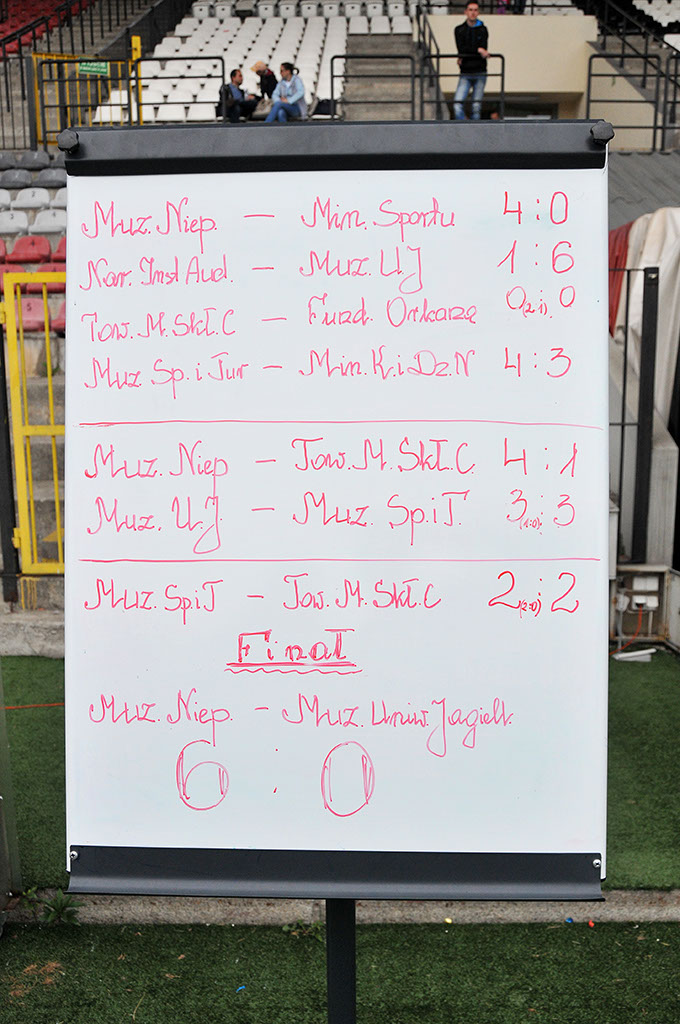 Muz. Niep. — Min. Sportu 4:0
Nar. Inst Aud. — Muz. UJ 1:6
Tow. M. Skł. C — Fund. Orkarzą 0(2:1)0
Muz. Sp. i Tur — Min. K. i Dz. N 4:3
Muz. Niep — Tow. M. Skł. C. 4:1
Muz. U.J. — Muz. Sp. i T. 3(1:0):3
Muz. Sp i T — Tow. M. Skł. C 2(2:0):2
Finał
Muz. Niep. — Muz. Uniw. Jagiell.
6 : 0